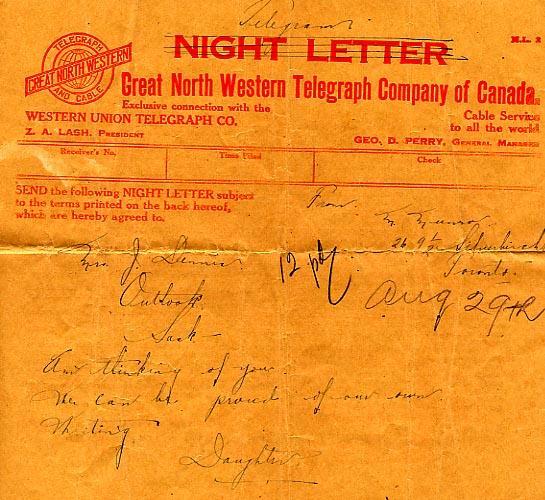 Telegram
NIGHT LETTER
N.L. 2
TELEGRAPH
GREAT NORTH WESTERN
AND CABLE
Great North Western Telegraph Company of Canada.
Exclusive connection with the
WESTERN UNION TELEGRAPH CO.
Z. A. LASH, PRESIDENT
Cable Service
to all the world
GEO. D. PERRY, GENERAL MANAGER
Receiver's No.
Time Filed
Check
SEND the following NIGHT LETTER subject
to the terms printed on the back hereof,
which are hereby agreed to.
From
Munro
26 9½
Toronto.
12 pd
Aug 29th
Mrs. J. Dennis
Outlook
Sask
Am thinking of you.
We can be proud of our own.
Writing
Daughter